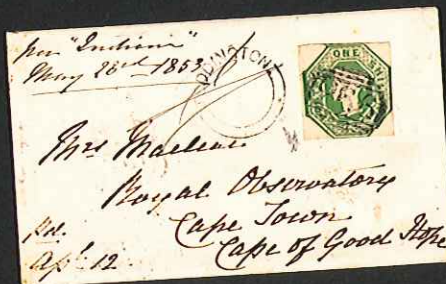 per "Indiana"
May 28th 1853
ADDINGTON
ONE SHILLING
Mrs Maclear
Royal Observatory
Cape Town
Cape of Good Hope
Apl 12